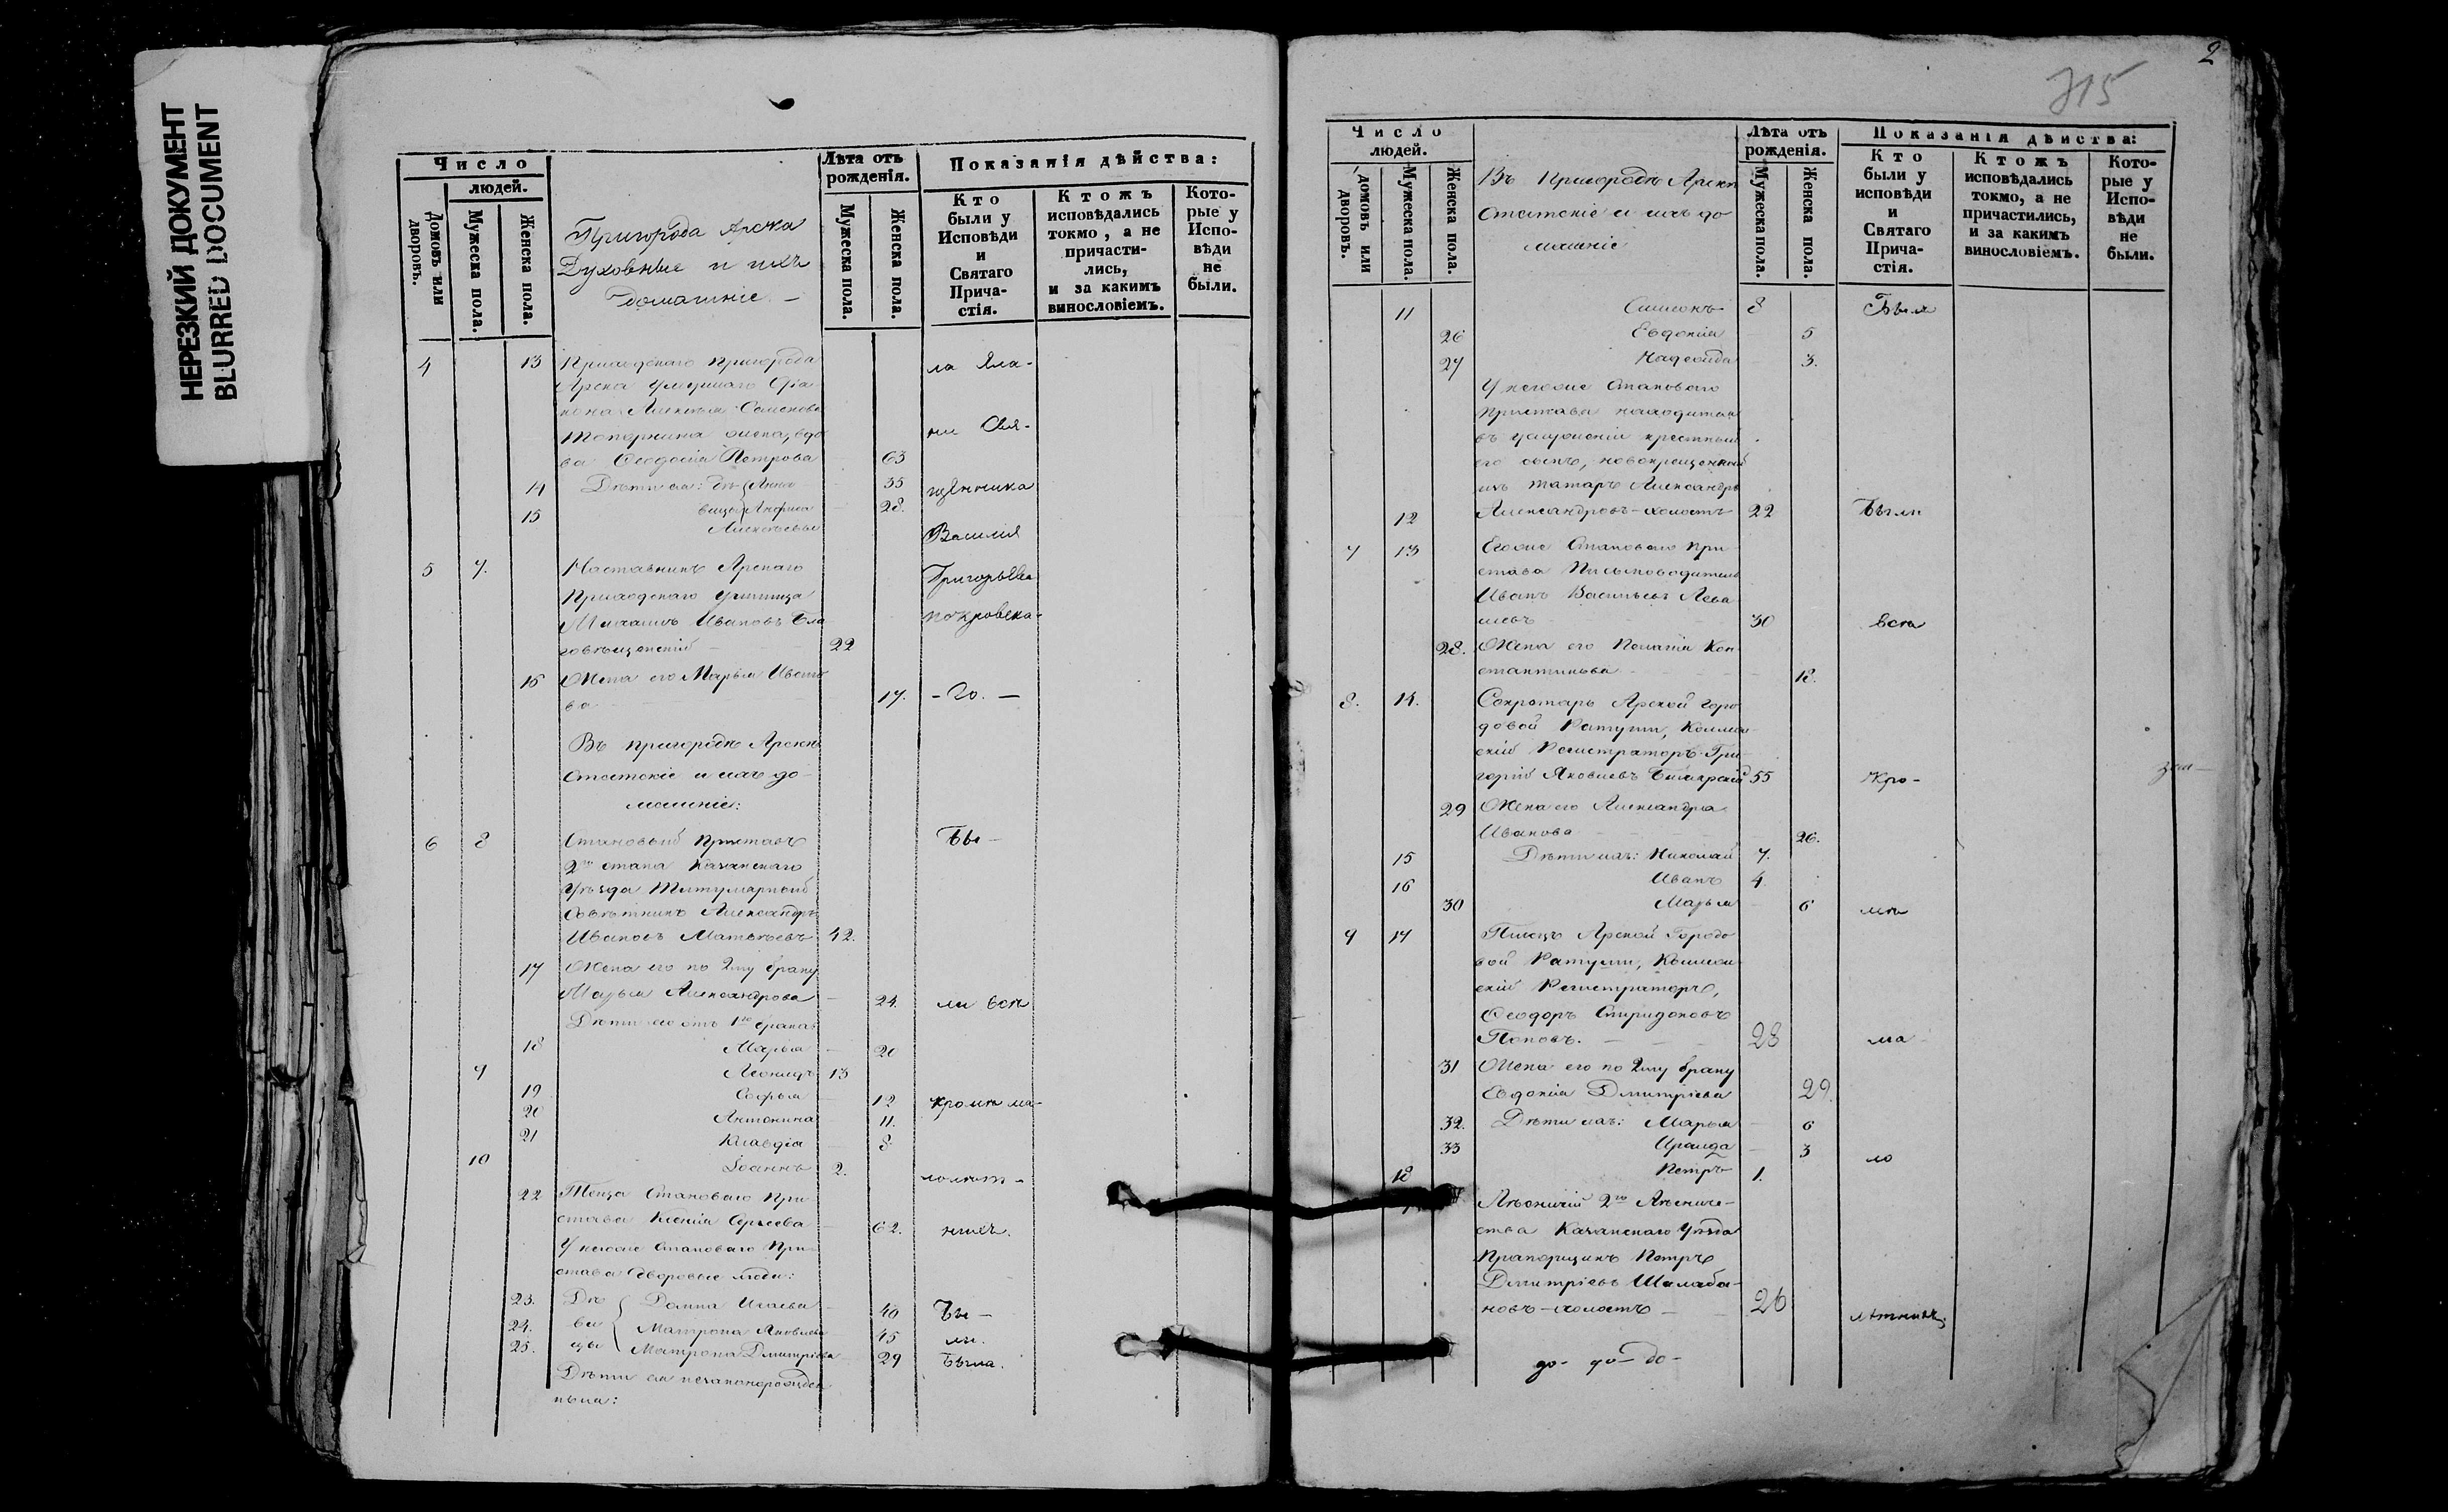 НЕРЕЗКИЙ ДОКУМЕНТ
BLURRED DOCUMENT
Число
людей.
Домовъ или дворовъ.
Мужеска пола.
Женска пола.
Пригорода Арска
Духовные и ихъ
домашніе. —
Лѣта отъ рожденія.
Мужеска пола.
Женска пола.
Показанія дѣйства:
Кто были у Исповѣди и Святаго Прича-стія.
Ктожъ исповѣдались токмо, а не причасти-лись, и за какимъ винословіемъ.
Кото-рые у Испо-вѣди не были.
4 13 ла Яла-
Арска умершаго Діа-
кона Алексѣя Семенова
жена, вдо- ни Свя-
ва Ѳеодосія Петрова 63
14 Дѣти ея: дѣ- Анна 35 щенника
15 вицы Анфиса 28.
Алексѣевы Василія
5 7. Наставникъ Арскаго Григорьева
Приходскаго училища
Михаилъ Ивановъ Бла- покровска-
говѣщенскій 22
16 Жена его Марья Ивано-
ва 17. - го. —
Въ пригородѣ Арскѣ
Статскіе и ихъ до-
машніе:
6 8 Становый Приставъ Бы —
2го стана Казанскаго
Уѣзда Титулярный
Совѣтникъ Александръ
Ивановъ Матвѣевъ 42.
17 Жена его по 2му браку
Марья Александрова 24. ли всѣ
Дѣти его отъ 1го брака:
18 Марья 20
9 Леонидъ 13
19 Софья 12 кромѣ ма-
20 Антонина 11.
21 Клавдія 8
10 Іоаннъ 2.
22 Теща Становаго При-
става Ксенія Сергеева 62. нихъ.
У негоже Становаго При-
става дворовые люди:
23. Дѣ- Домна Исаева 40 Бы —
24. ви- Матрона Яковлева 45 ли.
25. цы Матрона Дмитріева 29 Была.
Дѣти ея незаконорожден-
ныя:
2
315
Число
людей.
Домовъ или дворовъ.
Мужеска пола.
Женска пола.
Въ Пригородѣ Арскѣ
Статскіе и ихъ до
машніе
Лѣта отъ рожденія.
Мужеска пола.
Женска пола.
Показанія дѣйства:
Кто были у исповѣди и Святаго Прича-стія.
Ктожъ исповѣдались токмо, а не причастились, и за какимъ винословіемъ.
Кото-рые у Испо-вѣди не были.
11 Симеонъ 8
26 Евдокія 5
27 Надежда 3.
У негоже Становаго
Пристава находится
въ услуженіи крестный
его сынъ, новокрещенный
изъ татаръ Александръ
12 Александровъ - холостъ 22 Были
7 13 Егоже Становаго При-
става Письмоводитель
Иванъ Васильевъ
30 всѣ
28. Жена его Пелагія Кон-
стантинова 18.
8. 14. Секретарь Арской Горо-
довой Ратуши, Коллеж-
скій Регистраторъ Гри-
горій Яковлевъ 55 Кро-
29 Жена его Александра
Иванова 26.
15 Дѣти ихъ: Николай 7.
16 Иванъ 4.
30 Марья 6 мѣ
9 17 Писецъ Арской Городо
вой Ратуши, Коллеж-
скій Регистраторъ,
Ѳеодоръ Спиридоновъ
Поповъ. 28 ма
31 Жена его по 2му браку
Евдокія Дмитріева 29.
32. Дѣти ихъ: Марья 6
33 Ираида 3 ло
18 Петръ 1.
Лѣсничій 2го Лѣсниче-
ства Казанскаго Уѣзда
Прапорщикъ Петръ
Дмитріевъ Шалаба-
новъ - холостъ 26 лѣтнихъ.
до- до- до-